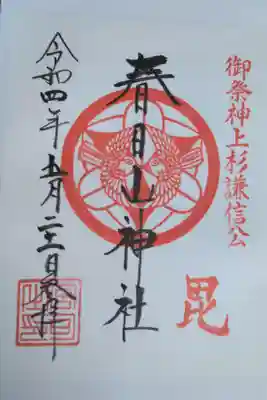 御祭神上杉謙信公
毘
春日山神社
令和四年五月二十三日参拝